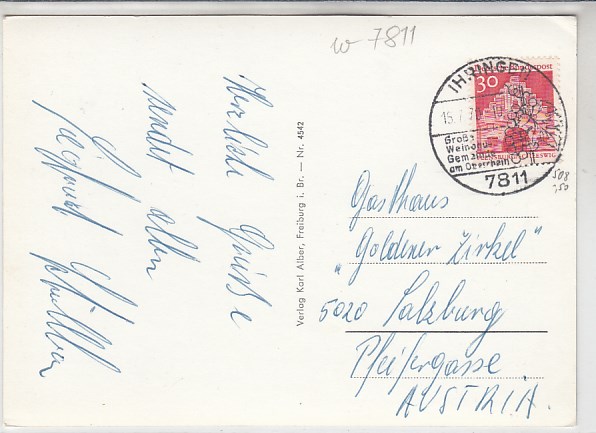 w-7811
Herzliche Grüße
sendet allen
Siegfried
Verlag Karl Alber, Freiburg i. Br. — Nr. 4542
IHRINGEN
30
Bundespost
15.7.7
Große
Weinbau
Gemeinde
am Oberrhein
7811
508
Gasthaus
„Goldener Zirkel"
5020 Salzburg
Pfeifergasse
AUSTRIA.